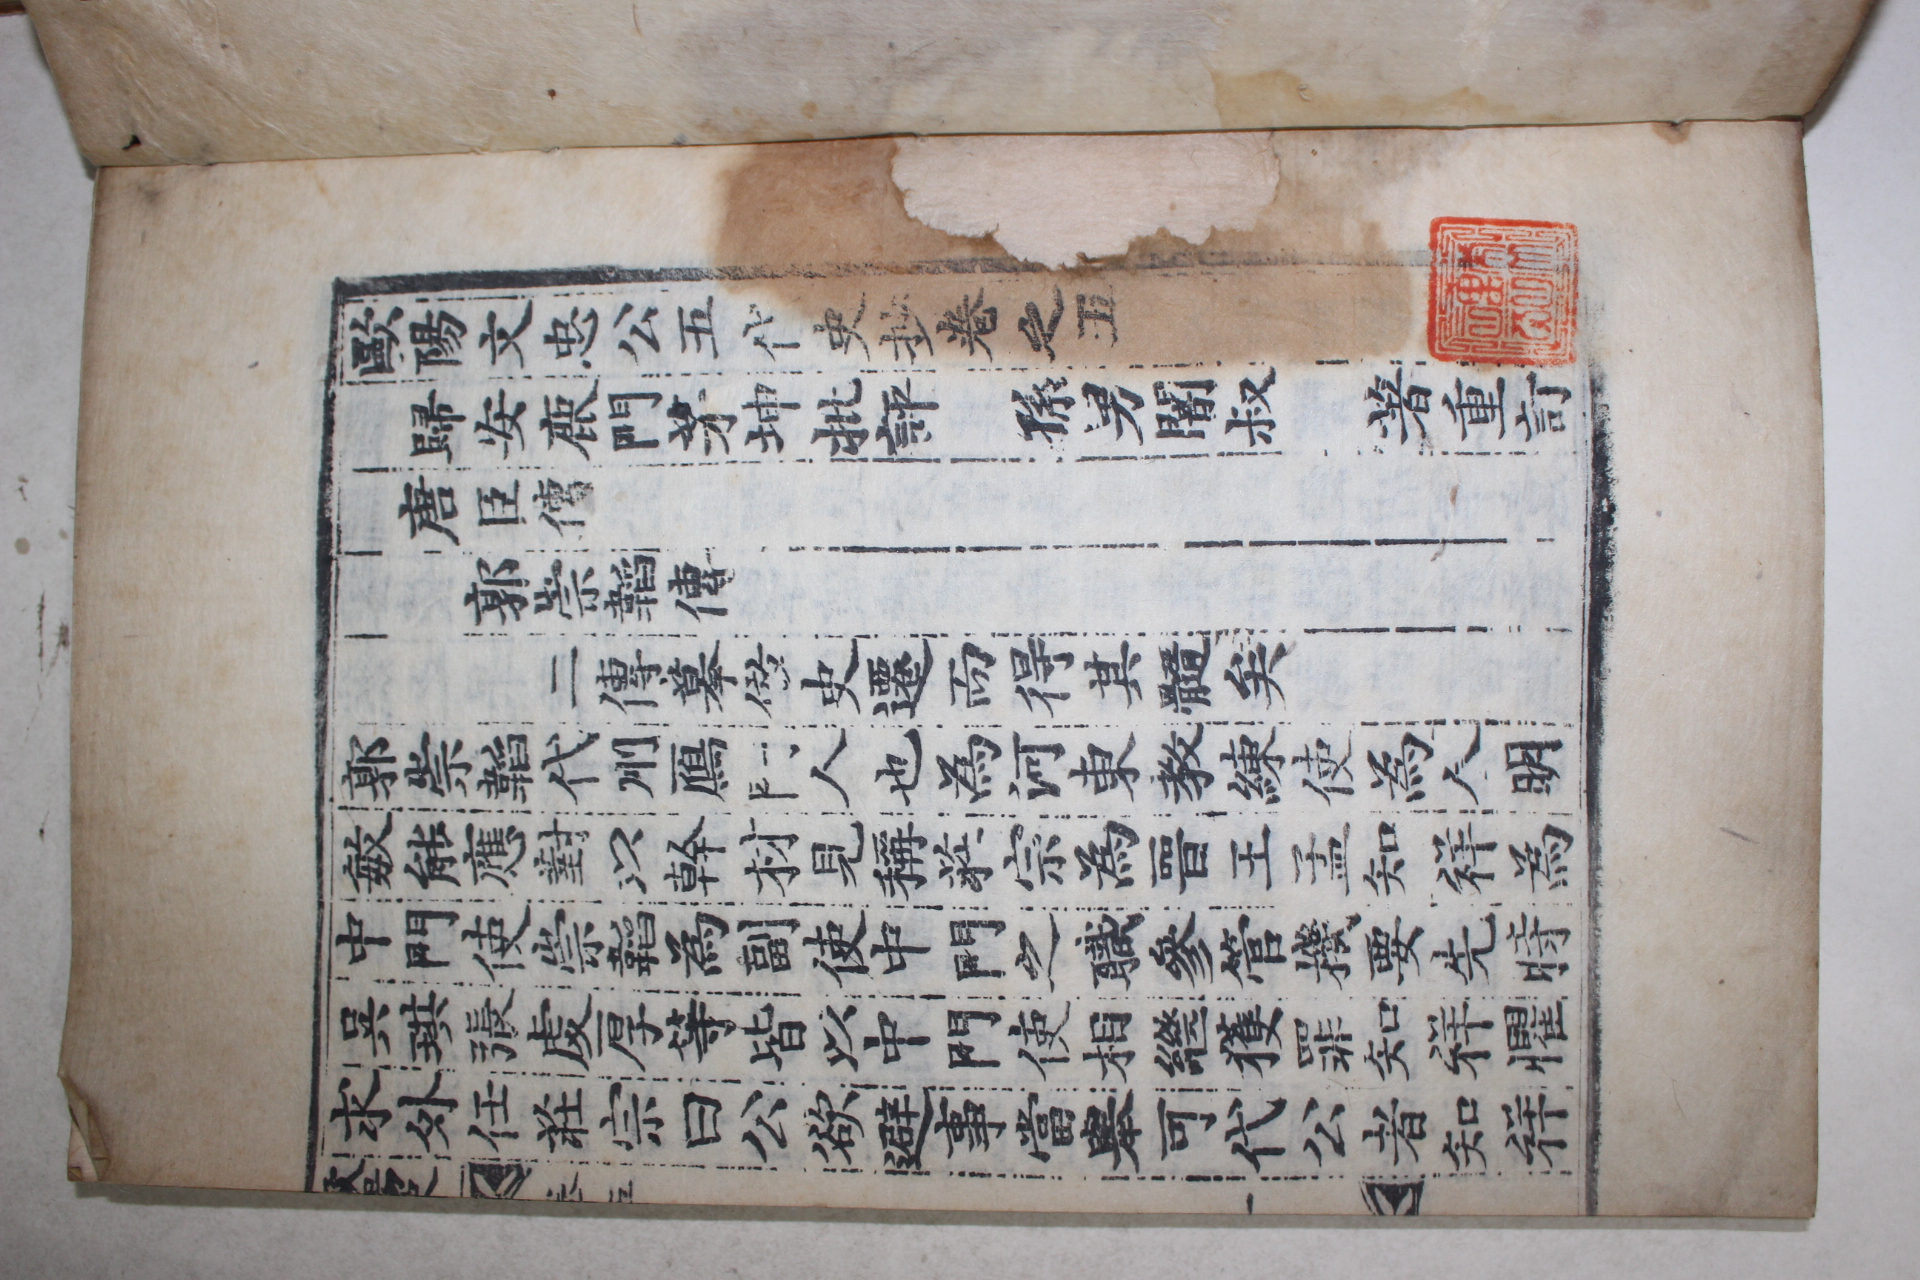 歐陽文忠公五代史抄卷之五
歸安鹿門茅坤批評 孫男闇叔 著重訂
唐臣傳
郭崇韜傳
二傳摹倣史遷而得其髓矣
郭崇韜代州鴈門人也為河東教練使為人明
敏能應對以幹材見稱莊宗為晉王孟知祥為
中門使崇韜為副使中門之職參管機要先時
吳珙張虔厚等皆以中門使相繼獲罪知祥懼
求外任莊宗曰公欲避事當舉可代公者知祥